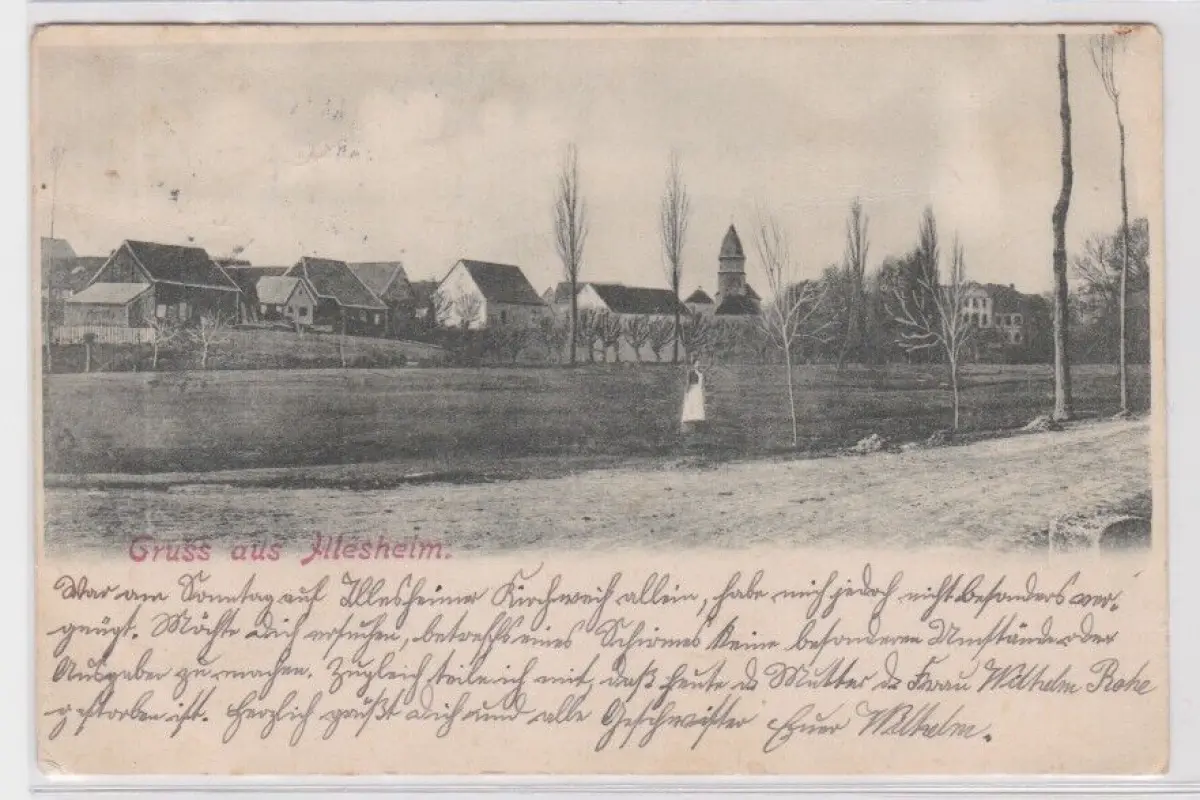 Gruss aus Illesheim.
War am Sonntag auf Illesheimer Kirchweih allein, habe mich jedoch nicht besonders ver-
gnügt. Möchte dich ersuchen, betreffs eines Schirmes keine besonderen Umstände oder
Ausgaben zu machen. Zugleich teile ich mit, daß heute d. Mutter d. Frau Wilhelm Rohe
gestorben ist. Herzlich grüßt dich und alle Geschwister Euer Wilhelm.